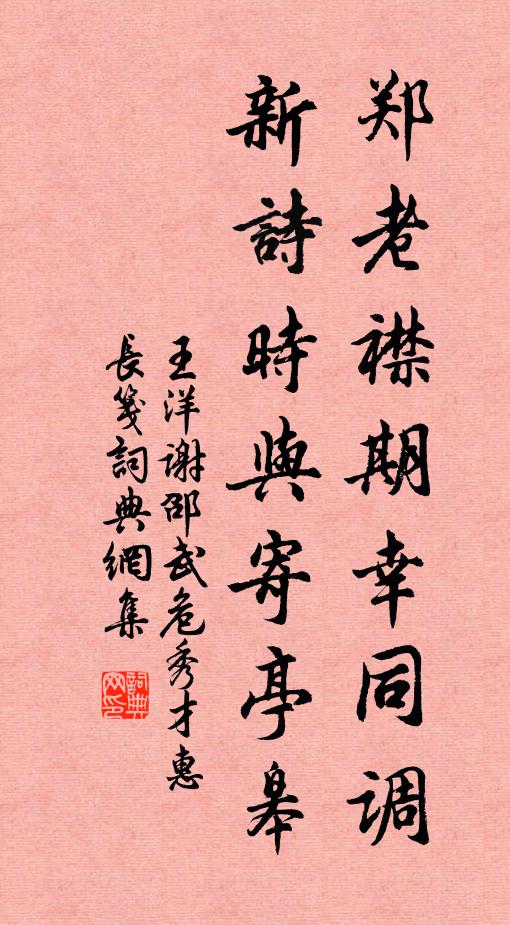 郑老襟期幸同调
新詩時與寄亭皋
王洋谢邵武危秀才惠
長箋詞典網集
詞典网印